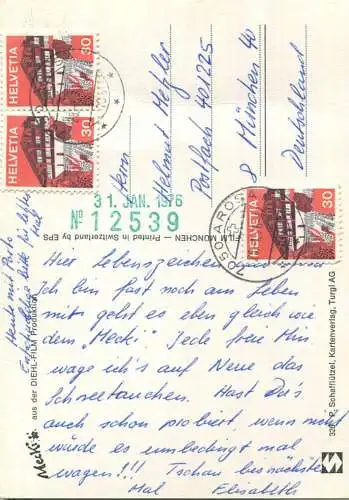 HELVETIA 30
HELVETIA 30
HELVETIA 30
Herrn
Helmut Metzler
Postfach 401225
8 München 40
Deutschland
31. JAN. 1976
No 12539
FILM MÜNCHEN — Printed in Switzerland by EPS
AROSA
Heute mit Porto
Entschuldige bitte für letztes
Mal
Hier Lebenszeichen
Ich bin fast noch am Leben
mit geht es eben gleich wie
dem "Mecki". Jede freie Min
wage ich's auf Neue das
Schneetauchen. Hast Du's
auch schon probiert, wenn nicht
würde es unbedingt mal
wagen!!! Tschau bis nächstes
Mal Elisabeth
Mecki
aus der DIEHL-FILM Produktion
P. Schafflützel, Kartenverlag, Turgi AG